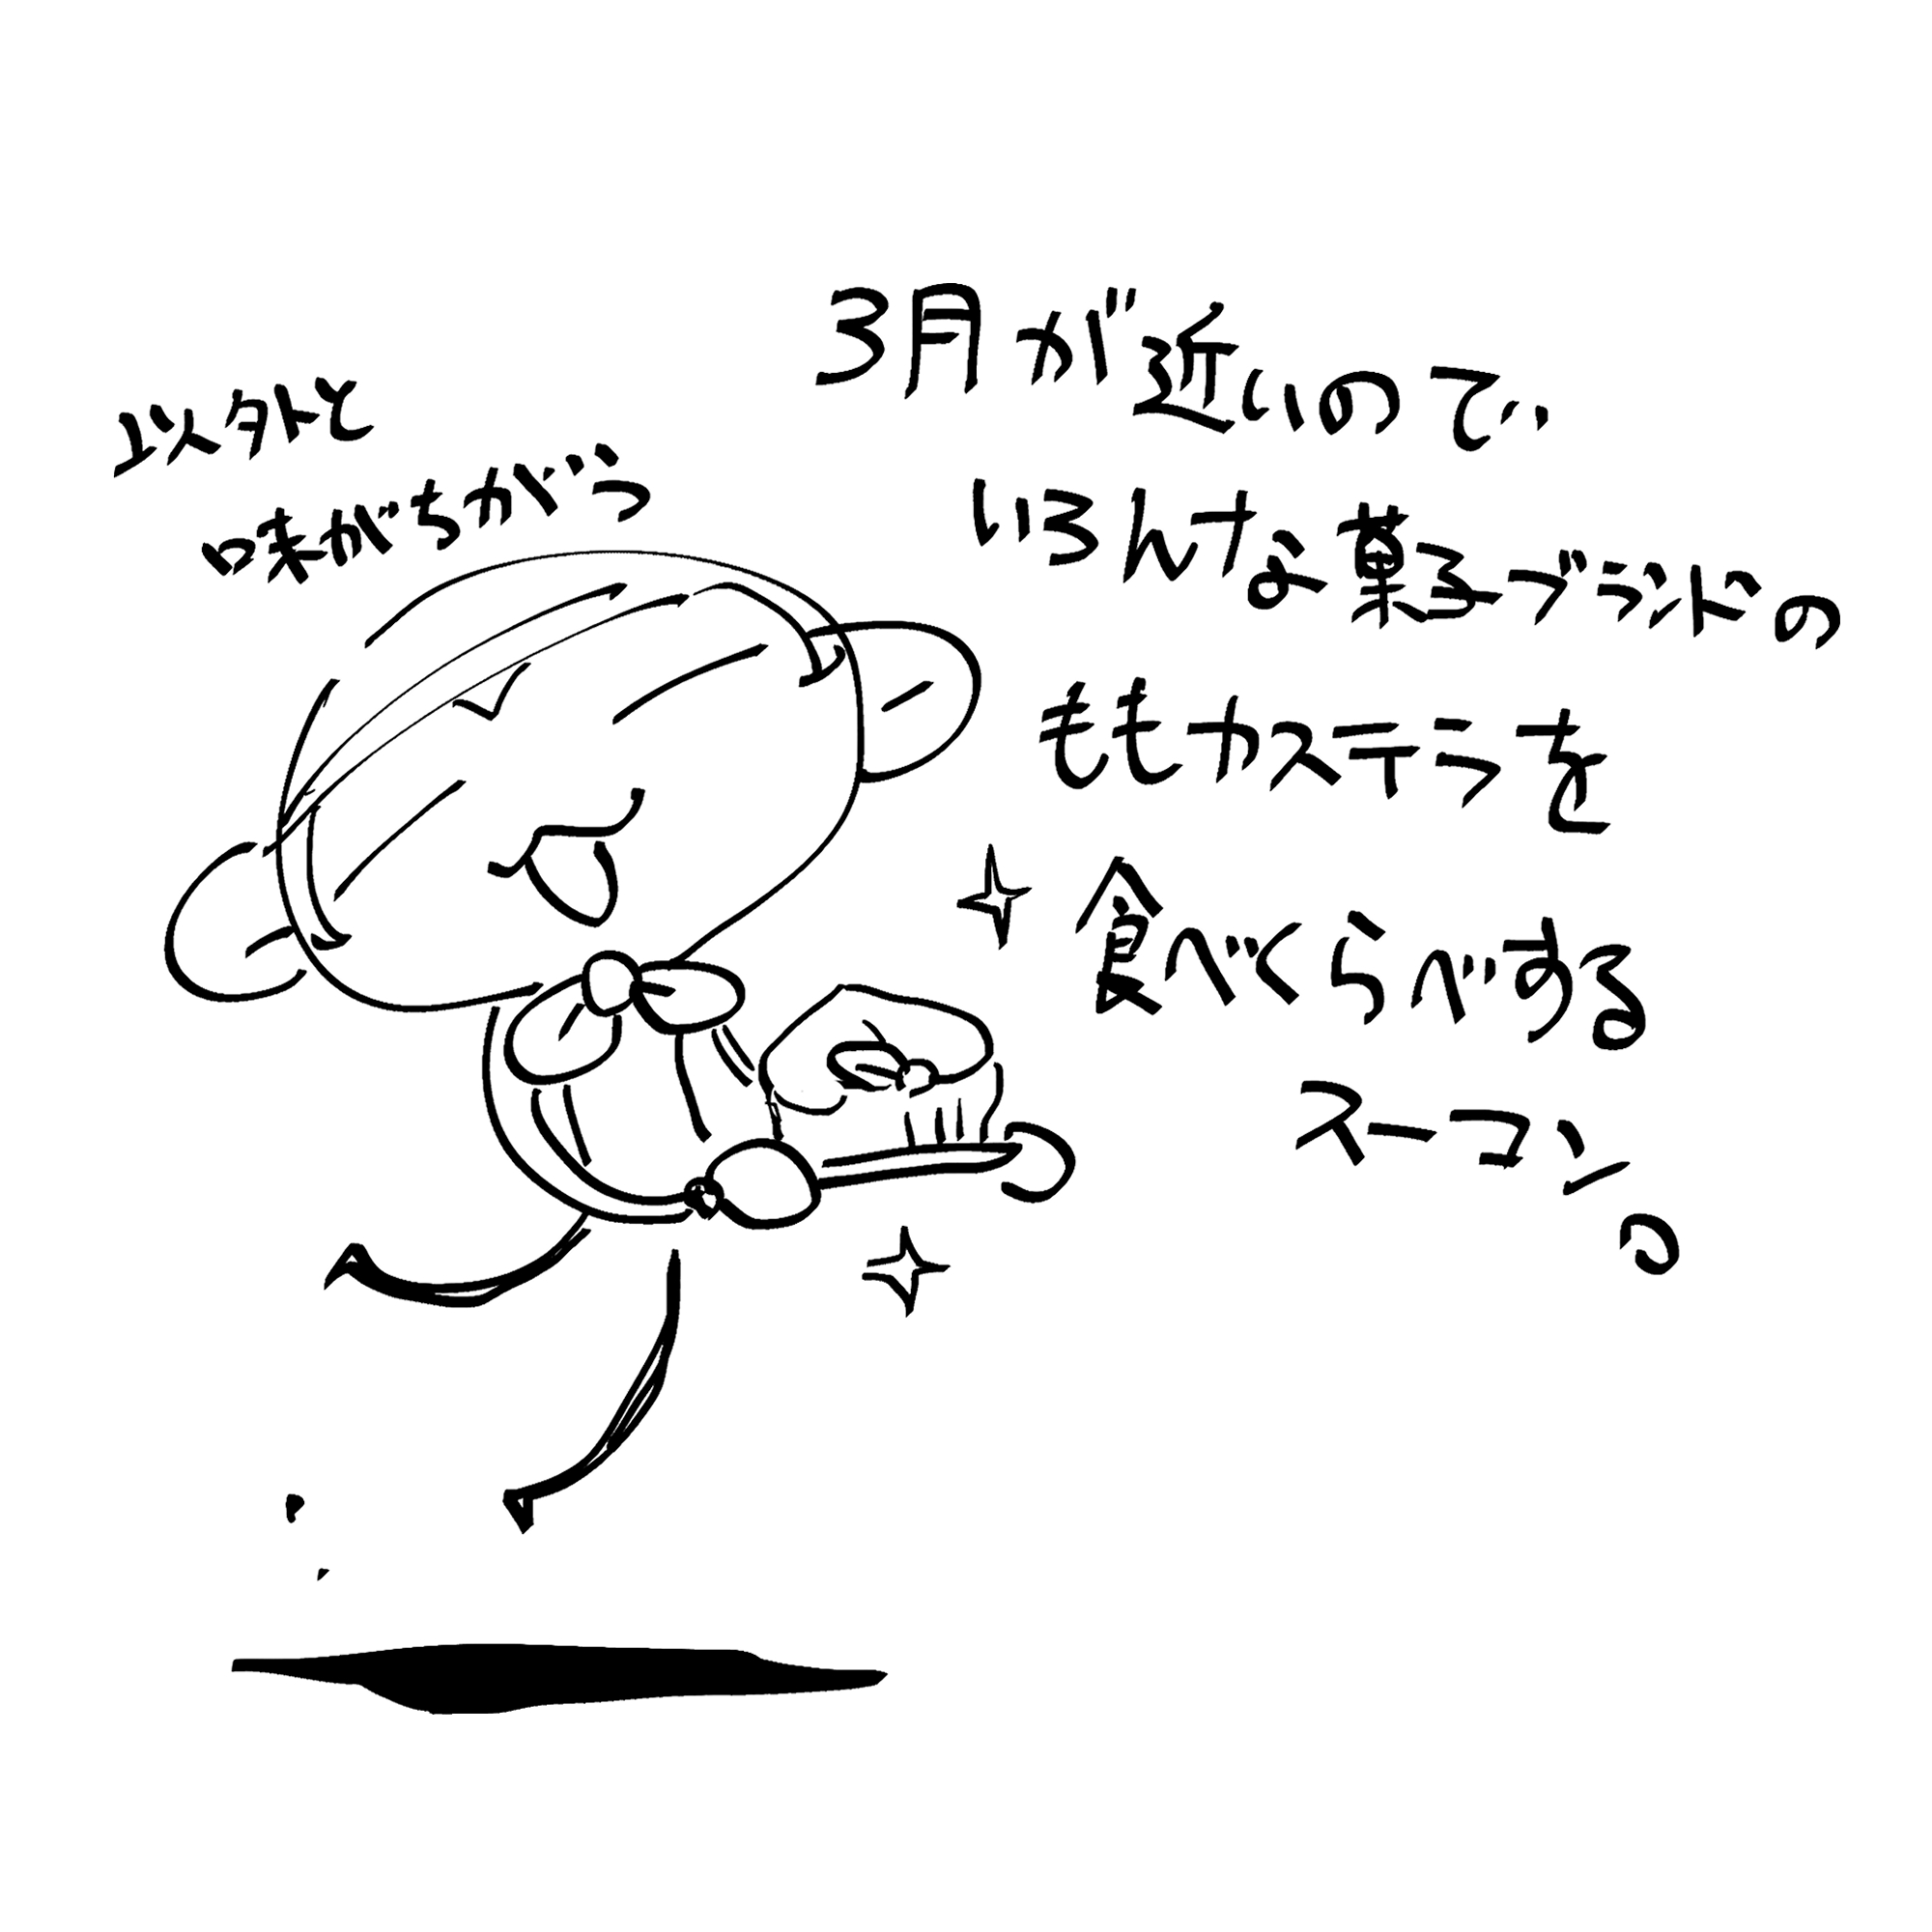 3月が近いので
いろんな菓子ブランドの
ももカステラを
食べくらべする
スーコン。
以外と
味がちがう